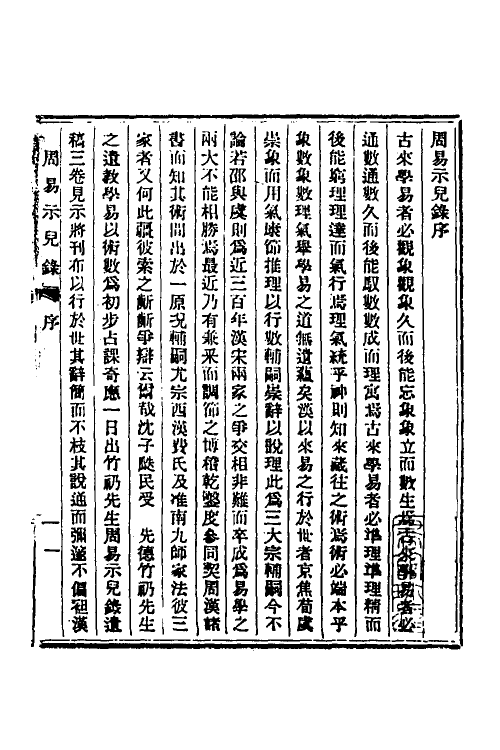 周易示兒錄序
古來學易者必觀象觀象久而後能忘象象立而數生焉古來學易者必
通數通數久而後能馭數數成而理寓焉古來學易者必準理準理精而
後能窮理理達而氣行焉理氣統乎神則知來藏往之術焉術必端本乎
象數象數理氣舉學易之道無遺蘊矣漢以來易之行於世者京焦荀虞
崇象而用氣康節推理以行數輔嗣崇辭以說理此爲三大宗輔嗣今不
論若邵與虞則爲近三百年漢宋兩家之爭交相非難而卒成爲易學之
兩大不能相勝焉最近乃有兼釆而調節之博稽乾鑿度參同契周漢諸
書而知其術間出於一原况輔嗣尤宗西漢費氏及淮南九師家法彼三
家者又何此疆彼索之齗齗爭辯云爾哉沈子 民受 先德竹礽先生
之遺教學易以術數爲初步占課奇應一日出竹礽先生周易示兒錄遺
稿三卷見示將刊布以行於世其辭簡而不枝其說通而彌邃不偏袒漢
周易示兒錄 序 一